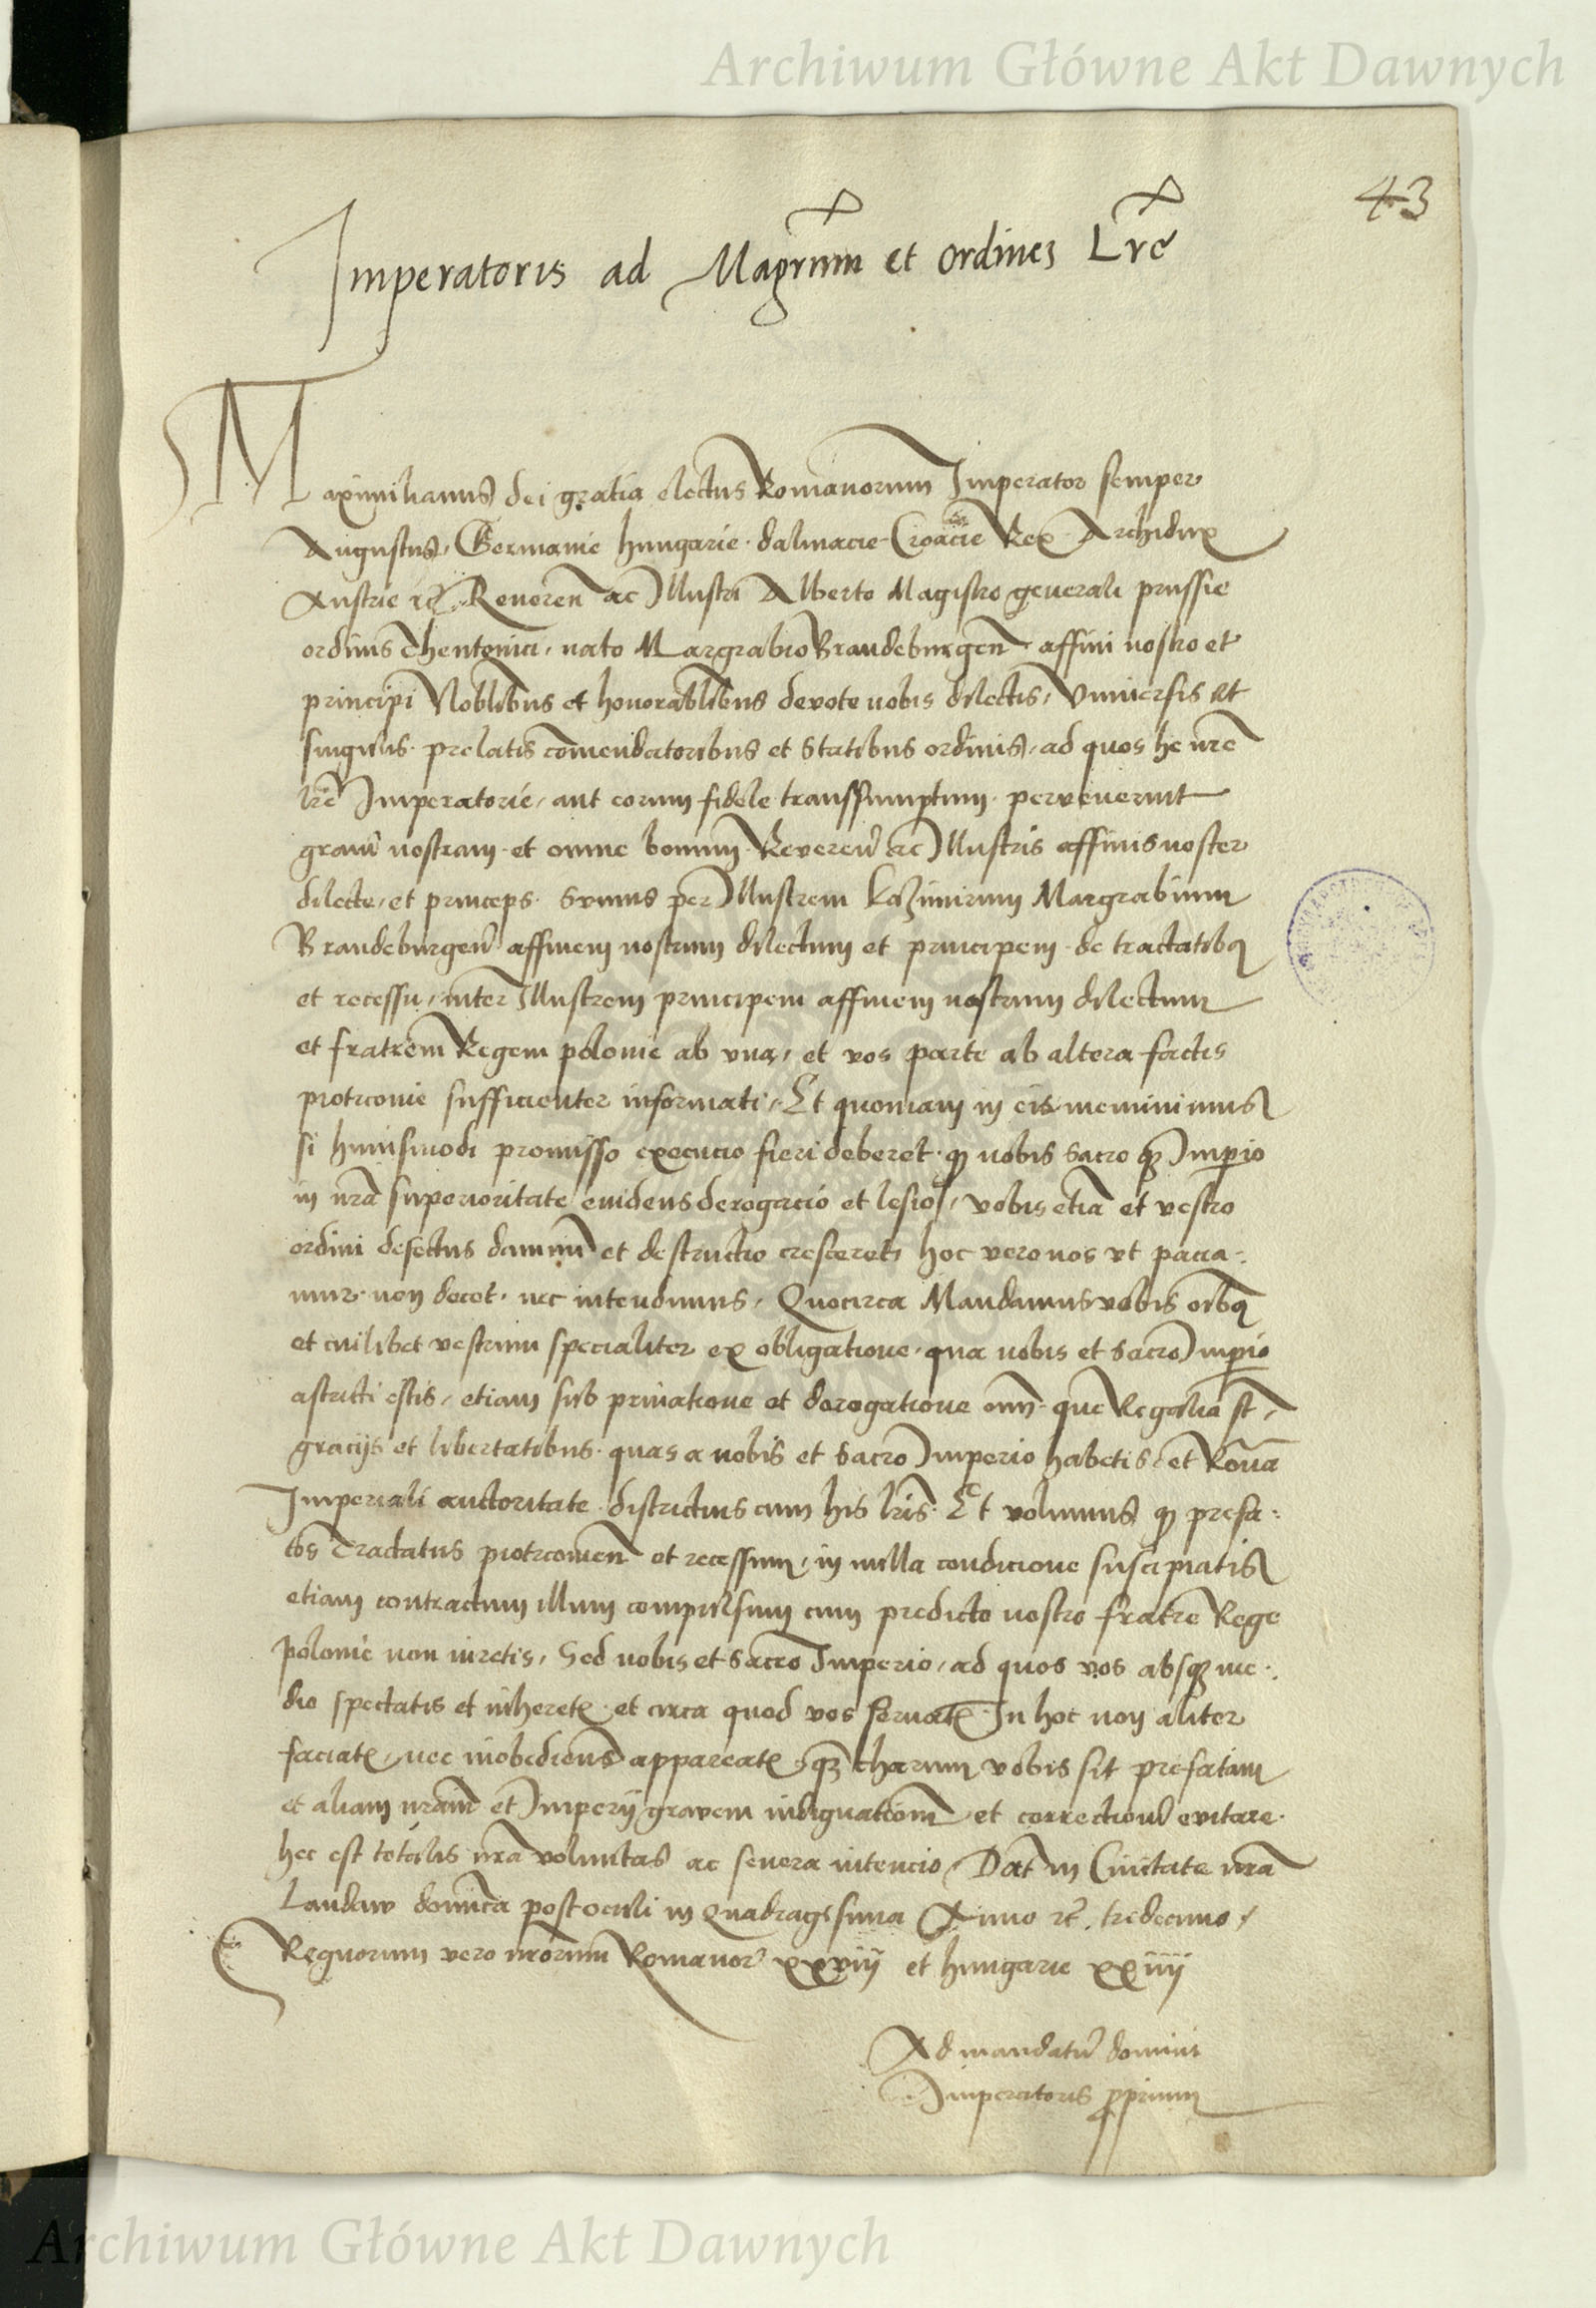 Archiwum Główne Akt Dawnych
43
Imperatoris ad Magrum et ordines Lre
Maximilianus dei gratia electus Romanorum Imperator semper
Augustus, Germanie hungarie. dalmacie Croacie Rex Archidux
Austrie rc Reueren ac Illustri Alberto Magistro generali prussie
ordinis Theutonici, nato Margrabio Brandeburgen affini nostro et
principi Noblibus et honorablibus devote nobis dilectis, Vniuersis et
singulis prelatis comendatoribus et Statibus ordinis, ad quos he nre
lre Imperatorie, aut eorum fidele transsumptum pervenerint
gram nostram et omne bonum. Reveren ac Illustris affinis noster
dilecte, et princeps. Sumus per Illustrem Kazimirum Margrabium
Brandeburgen affinem nostrum dilectum et principem de tractatibq
et recessu, inter Illustrem principem affinem nostrum dilectum
et fratrem Regem polonie ab vna, et vos parte ab altera factis
piotrconie sufficienter informati, Et quoniam in eis meminimus
si huiusmodi promisso execucio fieri deberet. q nobis Sacro q Imperio
in nra superioritate euidens derogacio et lesio, vobis etia et vestro
ordini defectus damnu et destructio cresceret, hoc vero nos vt pacia:
mur. non decet. nec intendimus, Quocirca Mandamus vobis oibq
et cuilibet vestrum specialiter ex obligatione. qua nobis et Sacro Imperio
astricti estis, etiam sub priuatione et derogatione omn. que Regalia st,
gracijs et libertatibus. quas a nobis et Sacro Imperio habetis, et Roma
Imperiali auctoritate districtius cum his lris. Et volumus q prefa:
tos Tractatus piotrconien et recessum, in nulla condicione suscipiatis
etiam contractum illum compulsum cum predicto nostro fratre Rege
polonie non iuretis, Sed nobis et Sacro Imperio, ad quos vos absq me:
dio spectatis et inherete. et circa quod vos seruate. In hoc non aliter
faciate, nec inobediens appareate, q charum vobis sit prefatam
et aliam nram et Imperij gravem indignationem et correctione evitare.
hec est totalis nra voluntas ac severa intencio, Dat in Ciuitate nra
Landaw dominica post oculi in Quadragesima Anno rc. tredecimo,
Regnorum vero nrorum Romanor xxviij et hungarie xxiiij
Ad mandatu domini
Imperatoris proprium
Archiwum Główne Akt Dawnych